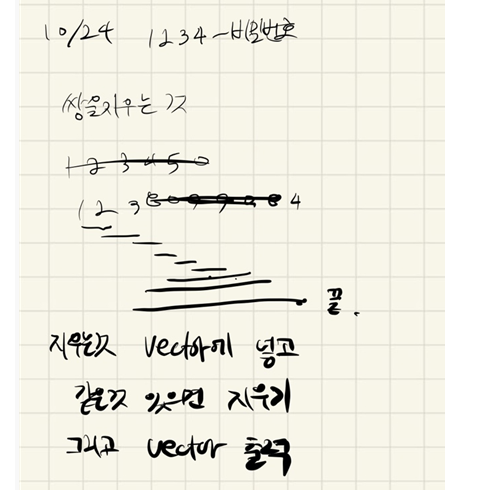 10/24 1234-비밀번호
쌍을지우는 것
123450
123 80998 4
끝.
지우는것 vector에 넣고
같은것 있으면 지우기
그리고 vector 출력